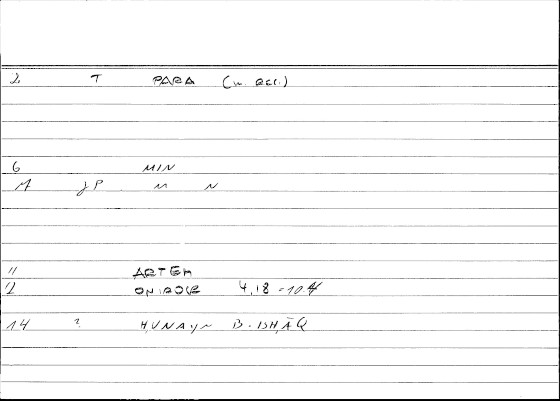 2 T PARA (w. REC.)
6 MIN
M JP M N
11 ARTEM
12 ONIROCR 4,18 = 10.4
14 ? ḤUNAYN B. ISḤĀQ